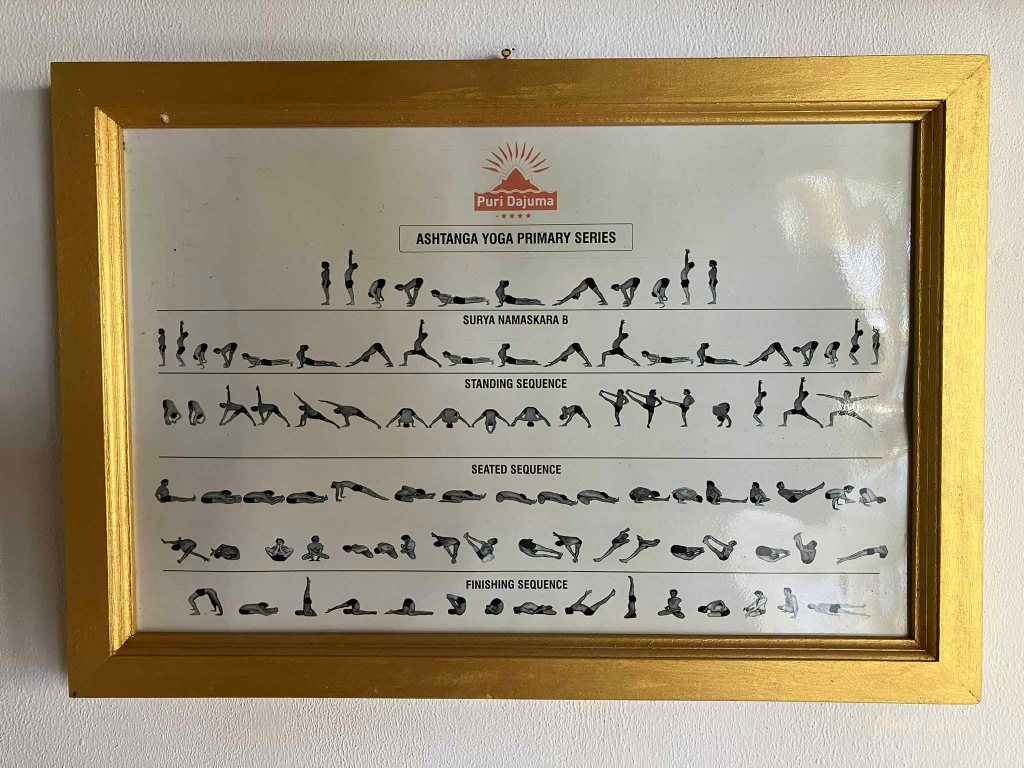 Puri Dajuma
ASHTANGA YOGA PRIMARY SERIES
SURYA NAMASKARA B
STANDING SEQUENCE
SEATED SEQUENCE
FINISHING SEQUENCE